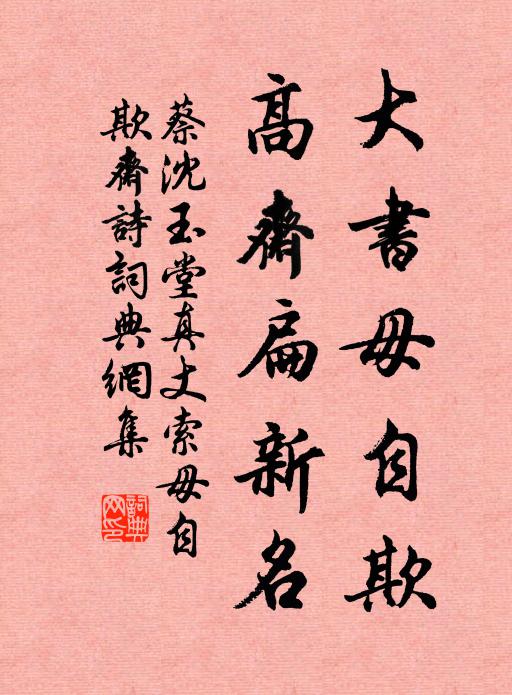 大書毋自欺
高齋扁新名
蔡沈玉堂真丈索毋自
欺齋詩詞典網集
詞典网印